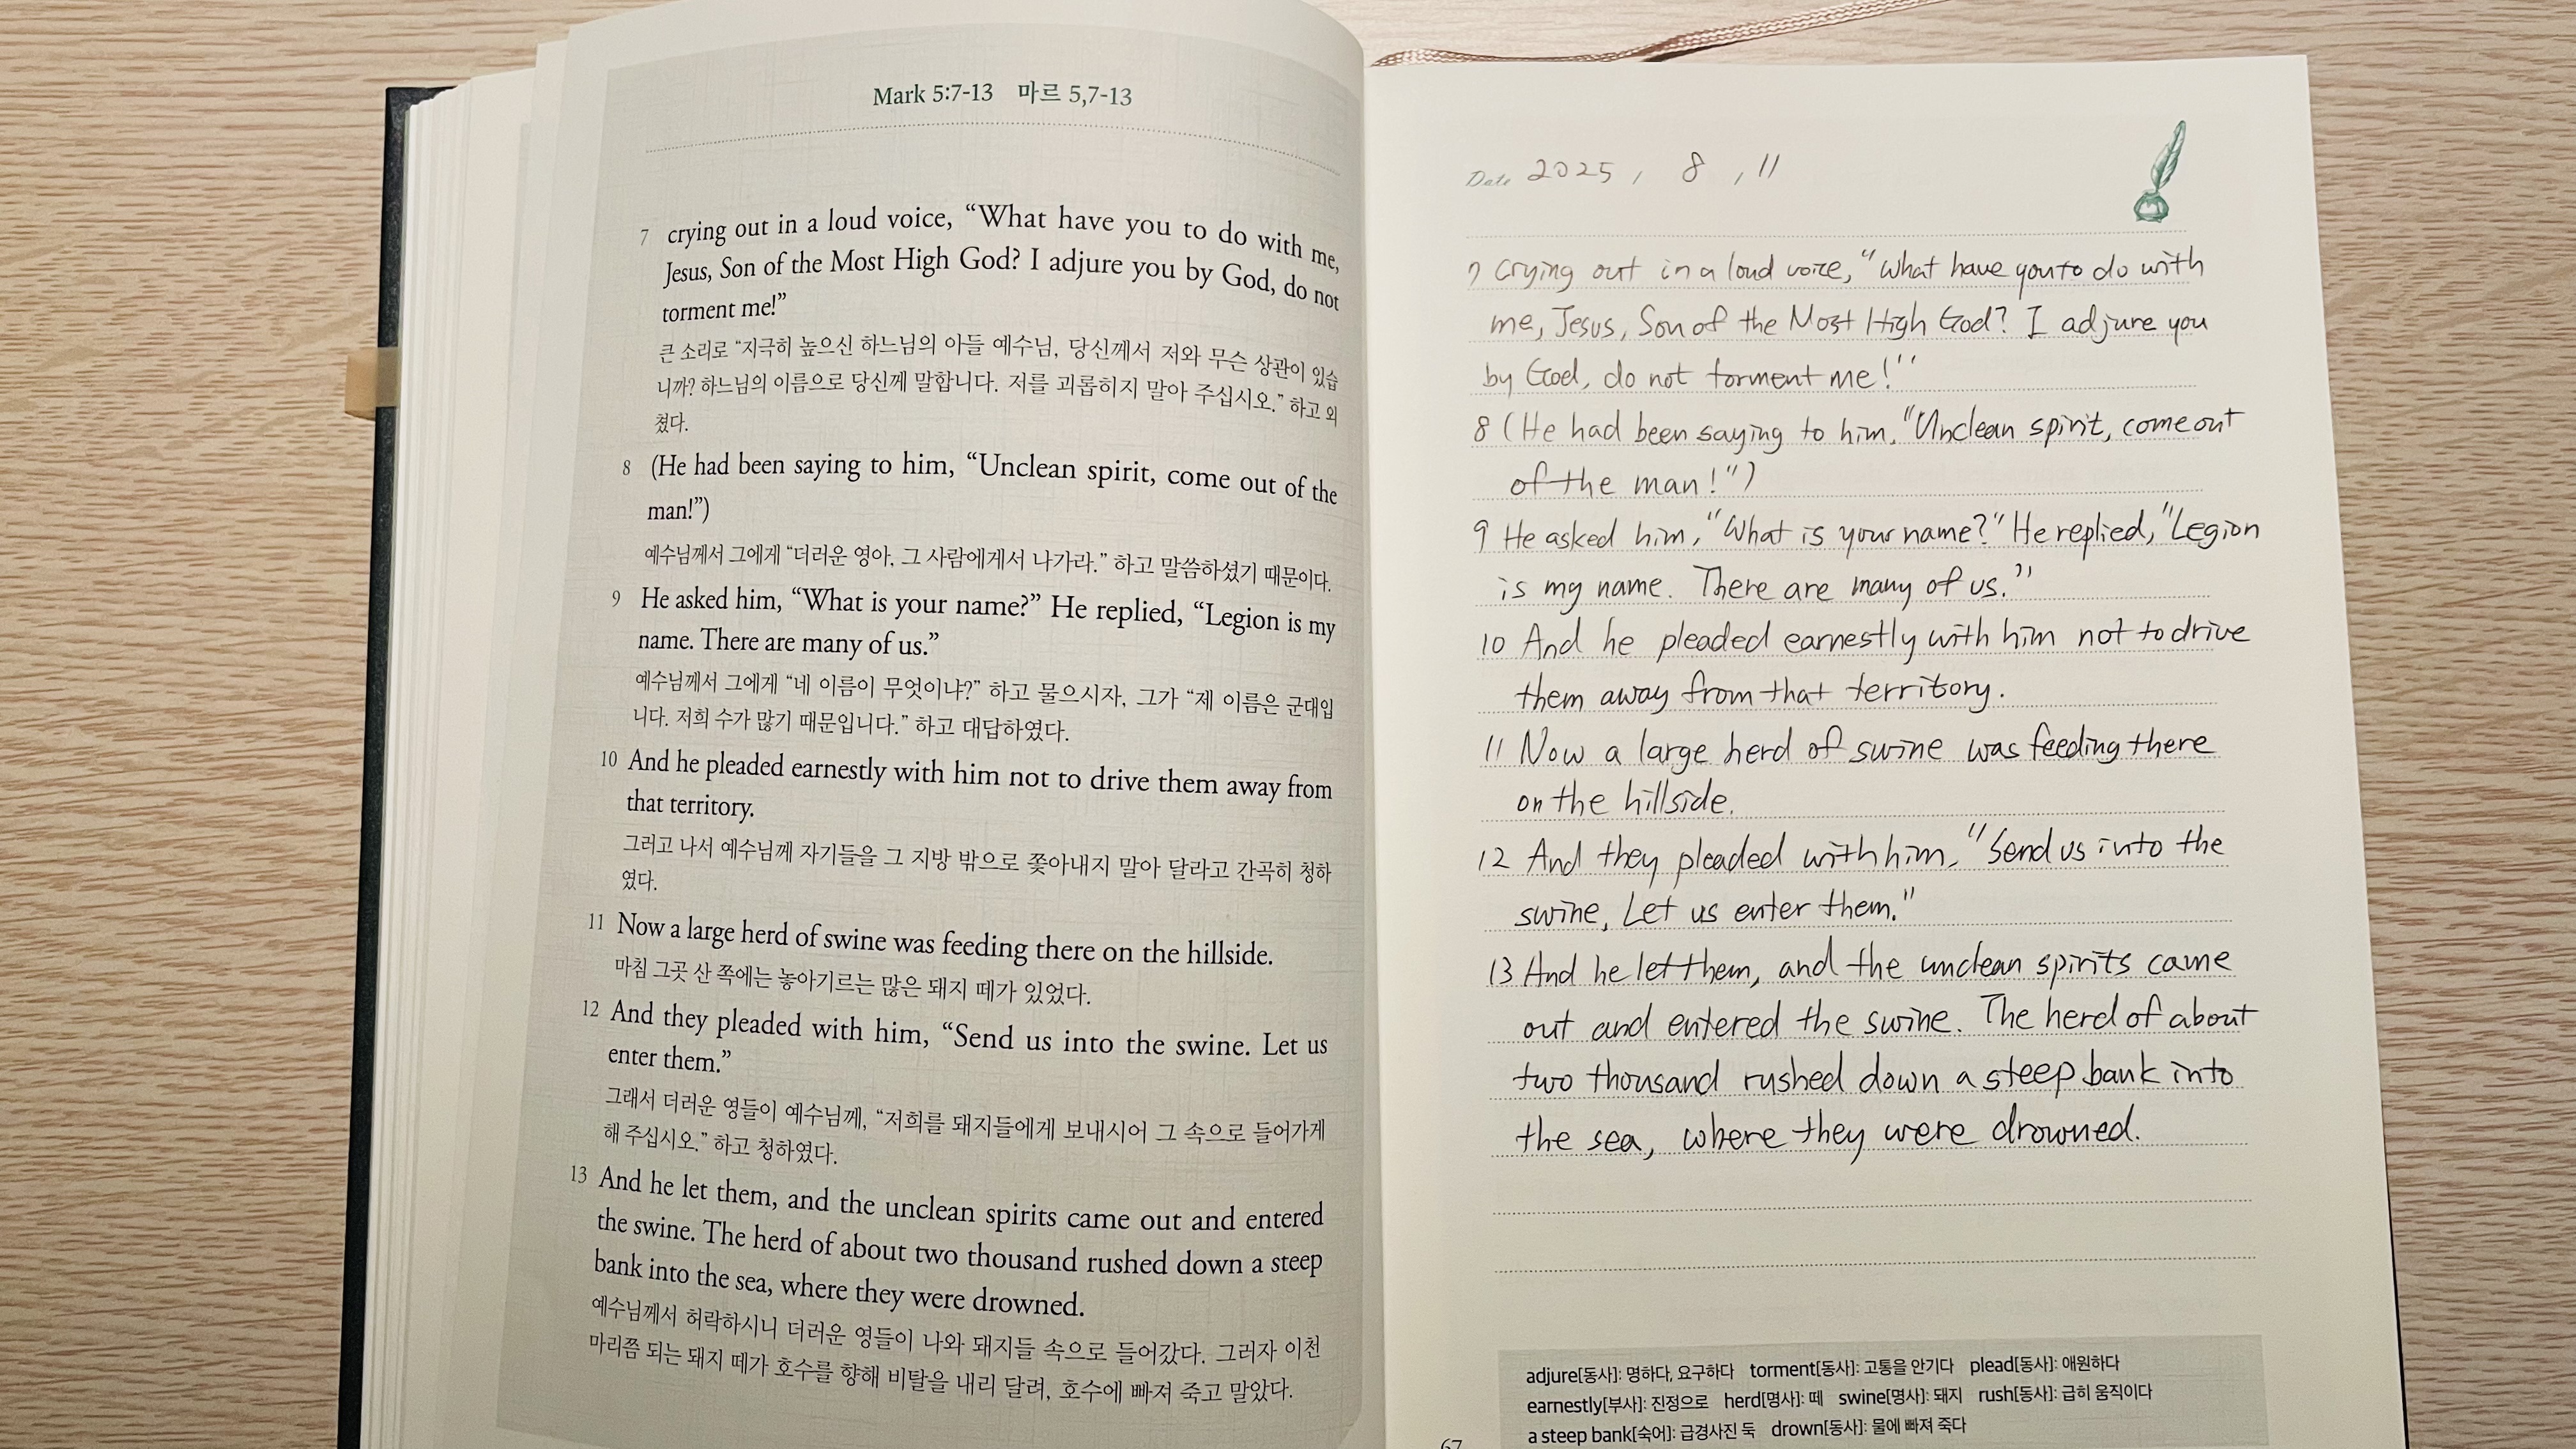 Mark 5:7-13 마르 5,7-13
7 crying out in a loud voice, “What have you to do with me,
Jesus, Son of the Most High God? I adjure you by God, do not
torment me!”
큰 소리로 “지극히 높으신 하느님의 아들 예수님, 당신께서 저와 무슨 상관이 있습
니까? 하느님의 이름으로 당신께 말합니다. 저를 괴롭히지 말아 주십시오.” 하고 외
쳤다.
8 (He had been saying to him, “Unclean spirit, come out of the
man!”)
예수님께서 그에게 “더러운 영아, 그 사람에게서 나가라.” 하고 말씀하셨기 때문이다.
9 He asked him, “What is your name?” He replied, “Legion is my
name. There are many of us.”
예수님께서 그에게 “네 이름이 무엇이냐?” 하고 물으시자, 그가 “제 이름은 군대입
니다. 저희 수가 많기 때문입니다.” 하고 대답하였다.
10 And he pleaded earnestly with him not to drive them away from
that territory.
그러고 나서 예수님께 자기들을 그 지방 밖으로 쫓아내지 말아 달라고 간곡히 청하
였다.
11 Now a large herd of swine was feeding there on the hillside.
마침 그곳 산 쪽에는 놓아기르는 많은 돼지 떼가 있었다.
12 And they pleaded with him, “Send us into the swine. Let us
enter them.”
그래서 더러운 영들이 예수님께, “저희를 돼지들에게 보내시어 그 속으로 들어가게
해 주십시오.” 하고 청하였다.
13 And he let them, and the unclean spirits came out and entered
the swine. The herd of about two thousand rushed down a steep
bank into the sea, where they were drowned.
예수님께서 허락하시니 더러운 영들이 나와 돼지들 속으로 들어갔다. 그러자 이천
마리쯤 되는 돼지 떼가 호수를 향해 비탈을 내리 달려, 호수에 빠져 죽고 말았다.
Date 2025, 8, 11
7 Crying out in a loud voice, "What have you to do with
me, Jesus, Son of the Most High God? I adjure you
by God, do not torment me!"
8 (He had been saying to him, "Unclean spirit, come out
of the man!")
9 He asked him, "What is your name?" He replied, "Legion
is my name. There are many of us."
10 And he pleaded earnestly with him not to drive
them away from that territory.
11 Now a large herd of swine was feeding there
on the hillside.
12 And they pleaded with him, "Send us into the
swine, Let us enter them."
13 And he let them, and the unclean spirits came
out and entered the swine. The herd of about
two thousand rushed down a steep bank into
the sea, where they were drowned.
adjure[동사]: 명하다, 요구하다 torment[동사]: 고통을 안기다 plead[동사]: 애원하다
earnestly[부사]: 진정으로 herd[명사]: 떼 swine[명사]: 돼지 rush[동사]: 급히 움직이다
a steep bank[숙어]: 급경사진 둑 drown[동사]: 물에 빠져 죽다
67